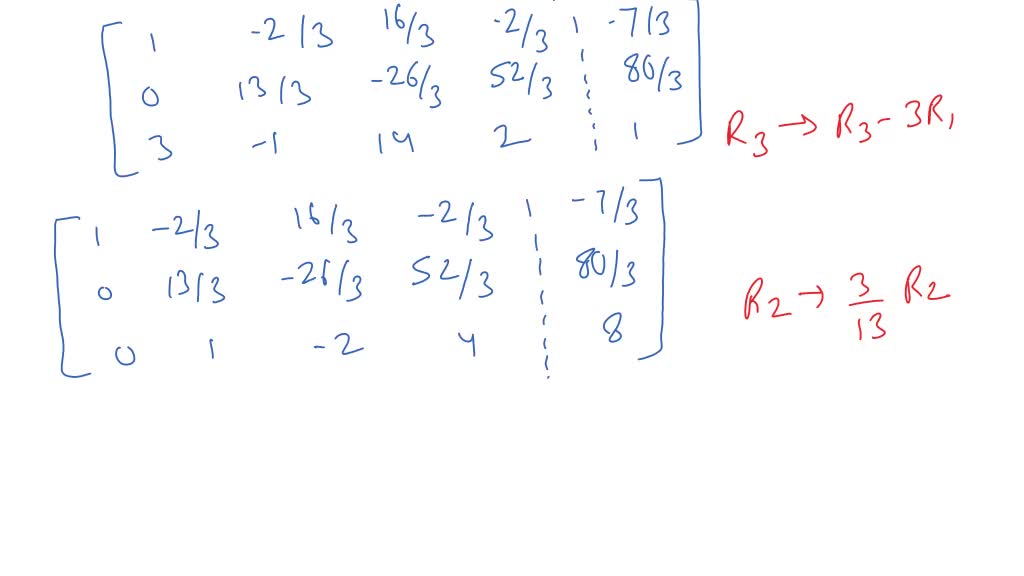 1 -2/3 16/3 -2/3 | -7/3
0 13/3 -26/3 52/3 | 80/3
3 -1 14 2 | 1 R3 → R3 - 3R1
1 -2/3 16/3 -2/3 | -7/3
0 13/3 -26/3 52/3 | 80/3 R2 → 3/13 R2
0 1 -2 4 | 8